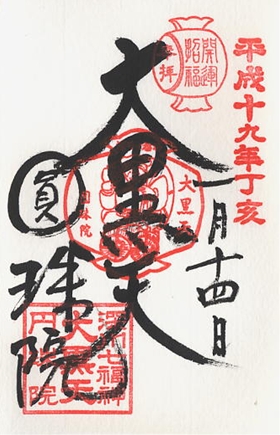 平成十九年丁亥
一月十四日
奉拝
開運
招福
大黒天
大黒天
圓珠院
圓珠院
深川七福神
大黒天
円珠院